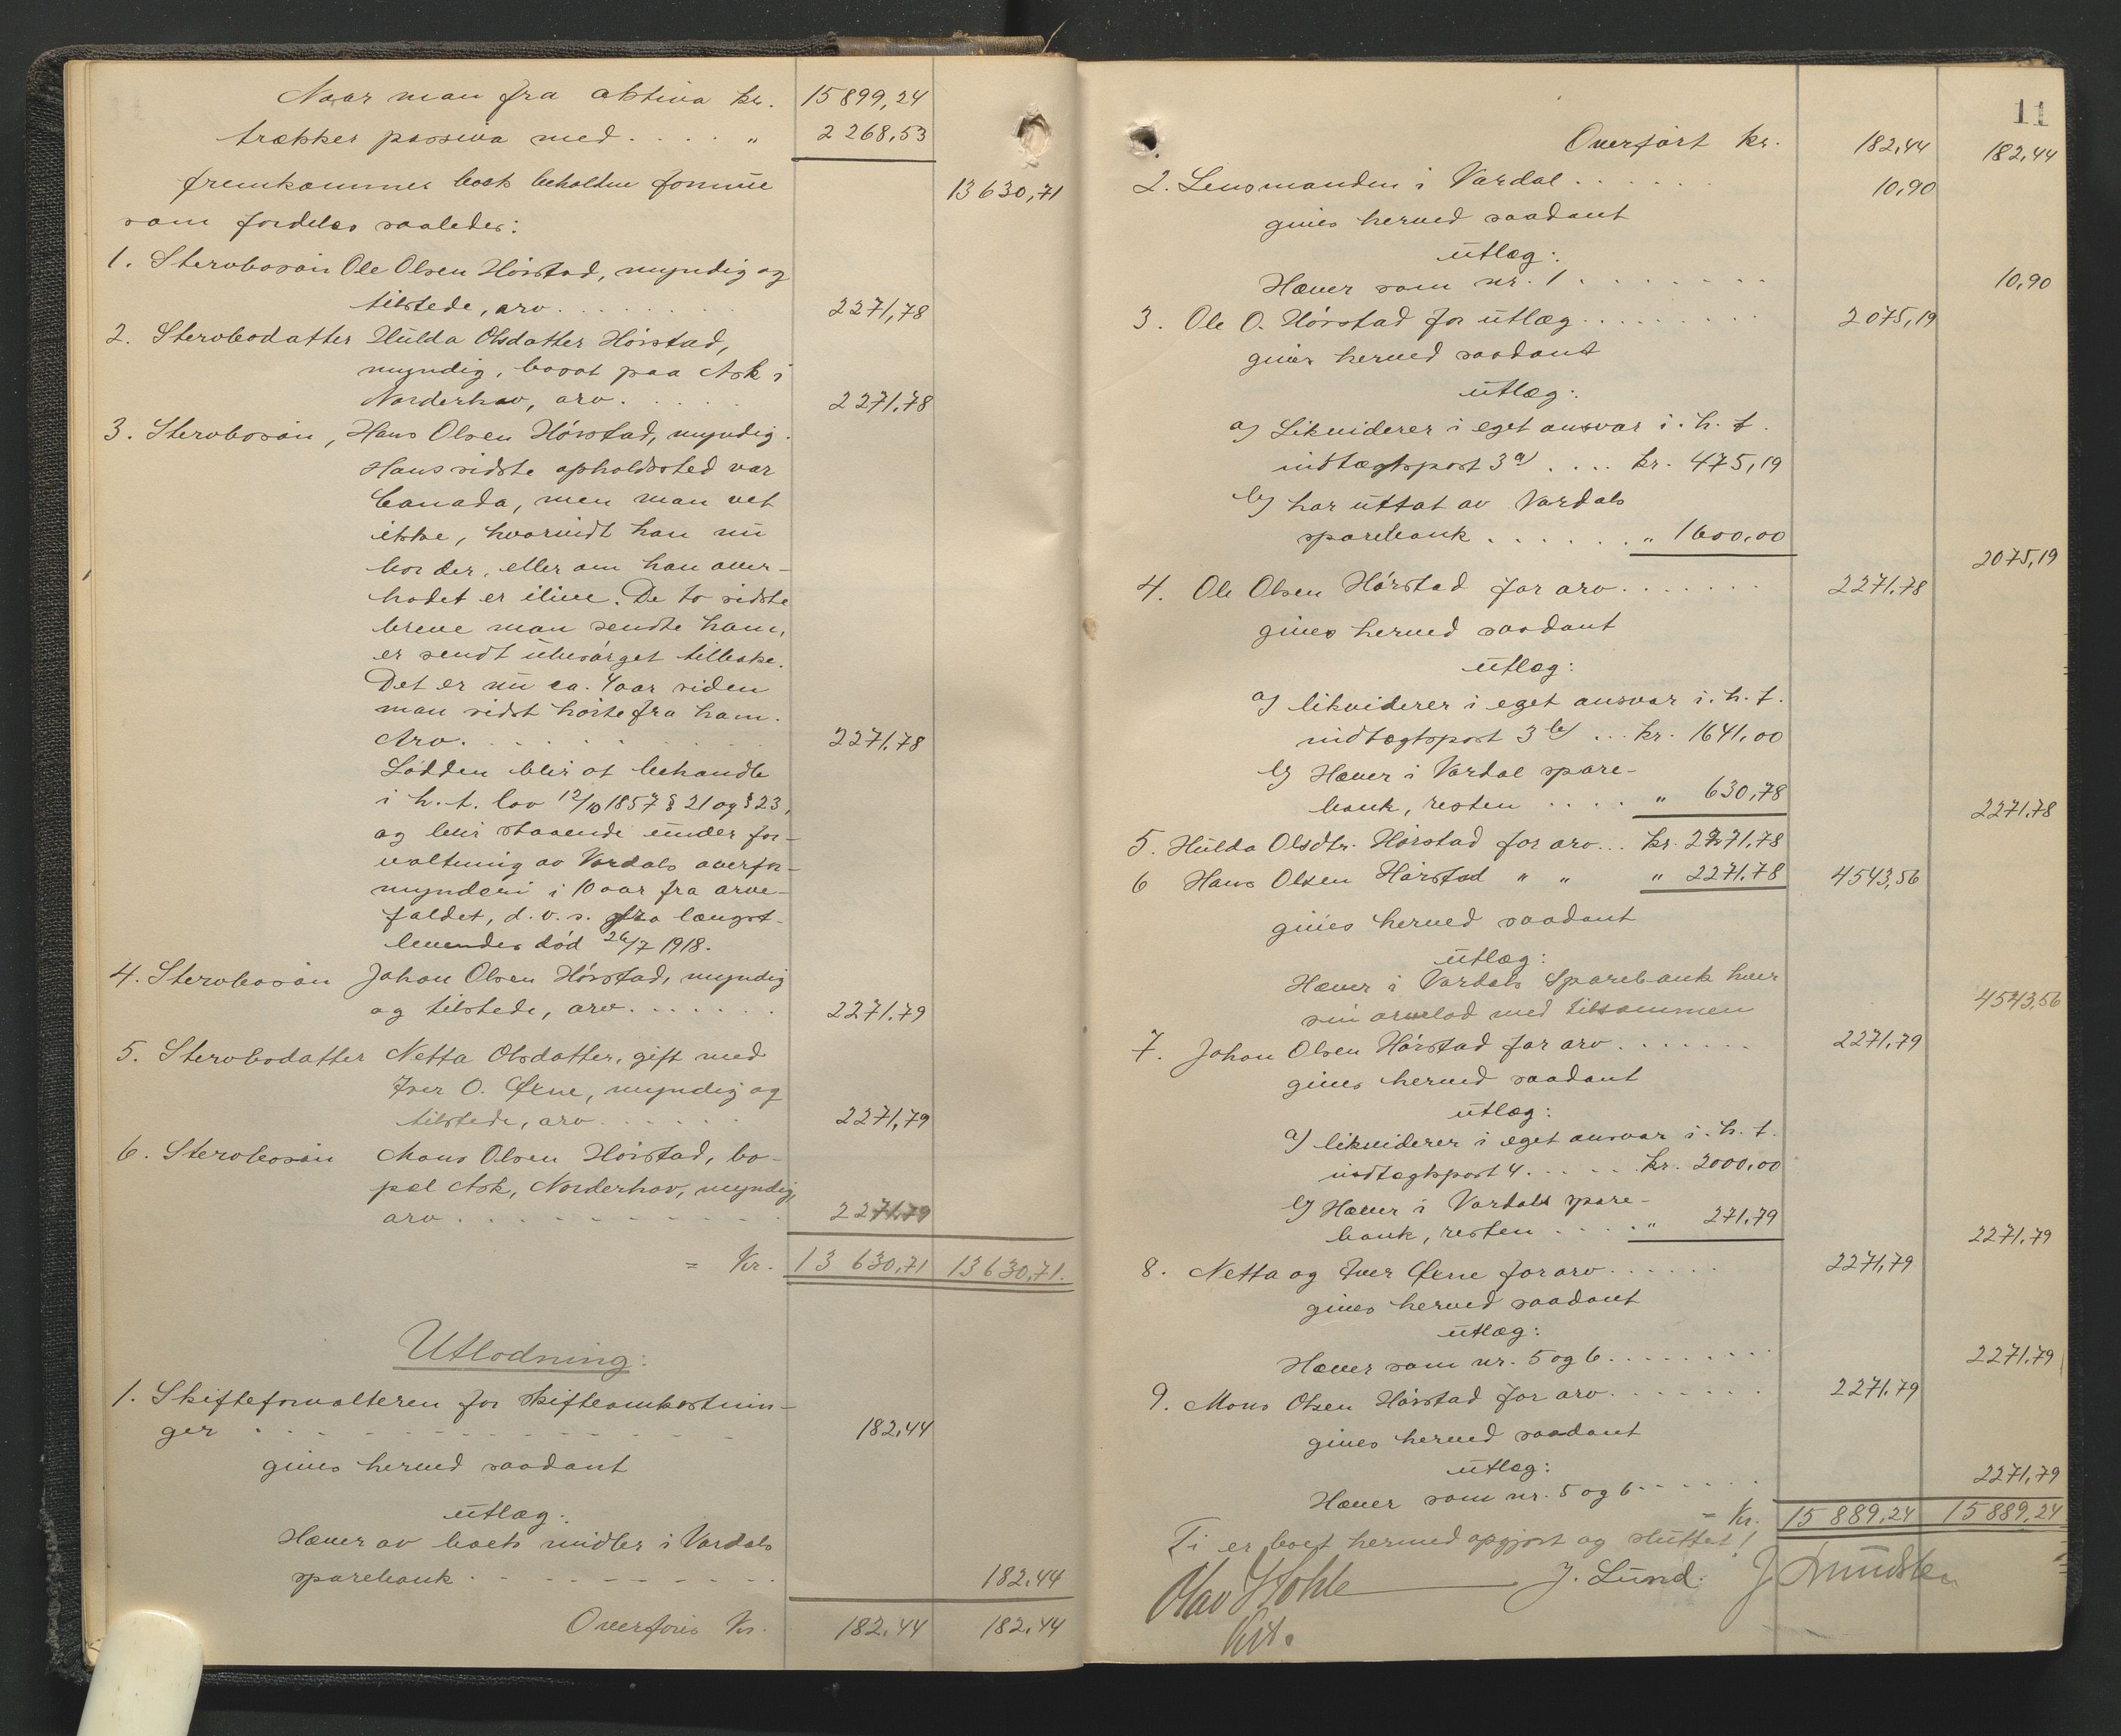 Naar man fra aktiva kr. 15899,24
trækker passiva med . . . . " 2268,53
fremkommer boets beholdne formue 13630,71
som fordeles saaledes:
1. Stervbosøn Ole Olsen Hørstad, myndig og
tilstede, arv . . . . . . . . 2271,78
2. Stervbodatter Hulda Olsdatter Hørstad,
myndig, bosat paa Ask i
Norderhov, arv . . . . . 2271,78
3. Stervbosøn, Hans Olsen Hørstad, myndig.
Hans sidste opholdssted var
Canada, men man vet
ikke, hvorvidt han nu
bor der, eller om han over-
hodet er ilive. De to sidste
breve man sendte ham,
er sendt ubesørget tilbake.
Det er nu ca. 4 aar siden
man sidst hørte fra ham.
Arv. . . . . . . . . . . 2271,78
Lodden blir at behandle
i h. t. lov 12/10 1857 § 21 og § 23,
og blir staaende under for-
valtning av Vardals overfor-
mynderi i 10 aar fra arve-
faldet, d. v. s. fra længst-
levendes død 26/7 1918.
4. Stervbosøn Johan Olsen Hørstad, myndig
og tilstede, arv. . . . . . . 2271,79
5. Stervbodatter Netta Olsdatter, gift med
Iver O. Øxne, myndig og
tilstede, arv . . . . . . 2271,79
6. Stervbosøn Mons Olsen Hørstad, bo-
pæl Ask, Norderhov, myndig,
arv . . . . . . . . . . . 2271,79
= Kr. 13 630,71 13630,71.
Utlodning:
1. Skifteforvalteren for skifteomkostnin-
ger . . . . . . . . . . . 182,44
gives herved saadant
utlæg:
Hæver av boets midler i Vardals
sparebank . . . . . . . . . 182,44
Overføres Kr. 182,44 182,44
11
Overført kr. 182,44 182,44
2. Lensmanden i Vardal . . . . . . 10,90
gives herved saadant
utlæg:
Hæver som nr. 1 . . . . . . . . 10,90
3. Ole O. Hørstad for utlæg . . . . . . . . 2075,19
gives herved saadant
utlæg:
a) Likviderer i eget ansvar i. h. t.
indtægtspost 3 a) . . . . kr. 475,19
b) har uttat av Vardals
sparebank . . . . . . . " 1600,00
2075,19
4. Ole Olsen Hørstad for arv . . . . . . . 2271,78
gives herved saadant
utlæg:
a) likviderer i eget ansvar i. h. t.
indtægtspost 3 b) . . . kr. 1641,00
b) Hæver i Vardal spare-
bank, resten . . . . " 630,78
2271,78
5. Hulda Olsdtr. Hørstad for arv . . . kr. 2271,78
6 Hans Olsen Hørstad " " " 2271,78 4543,56
gives herved saadant
utlæg:
Hæver i Vardals Sparebank hver
sin arvelod med tilsammen 4543,56
7. Johan Olsen Hørstad for arv . . . . . . . 2271,79
gives herved saadant
utlæg:
a) likviderer i eget ansvar i. h. t.
indtægtspost 4 . . . . . kr. 2000,00
b) Hæver i Vardals spare-
bank, resten . . . . . " 271,79
2271,79
8. Netta og Iver Øxne for arv . . . . . . 2271,79
gives herved saadant
utlæg:
Hæver som nr. 5 og 6 . . . . . . . . . 2271,79
9. Mons Olsen Hørstad for arv . . . . . . . 2271,79
gives herved saadant
utlæg:
Hæver som nr. 5 og 6 . . . . . . 2271,79
= Kr. 15 889,24 15 889,24
Ti er boet hermed opgjort og sluttet!
Olav J. Lund. J